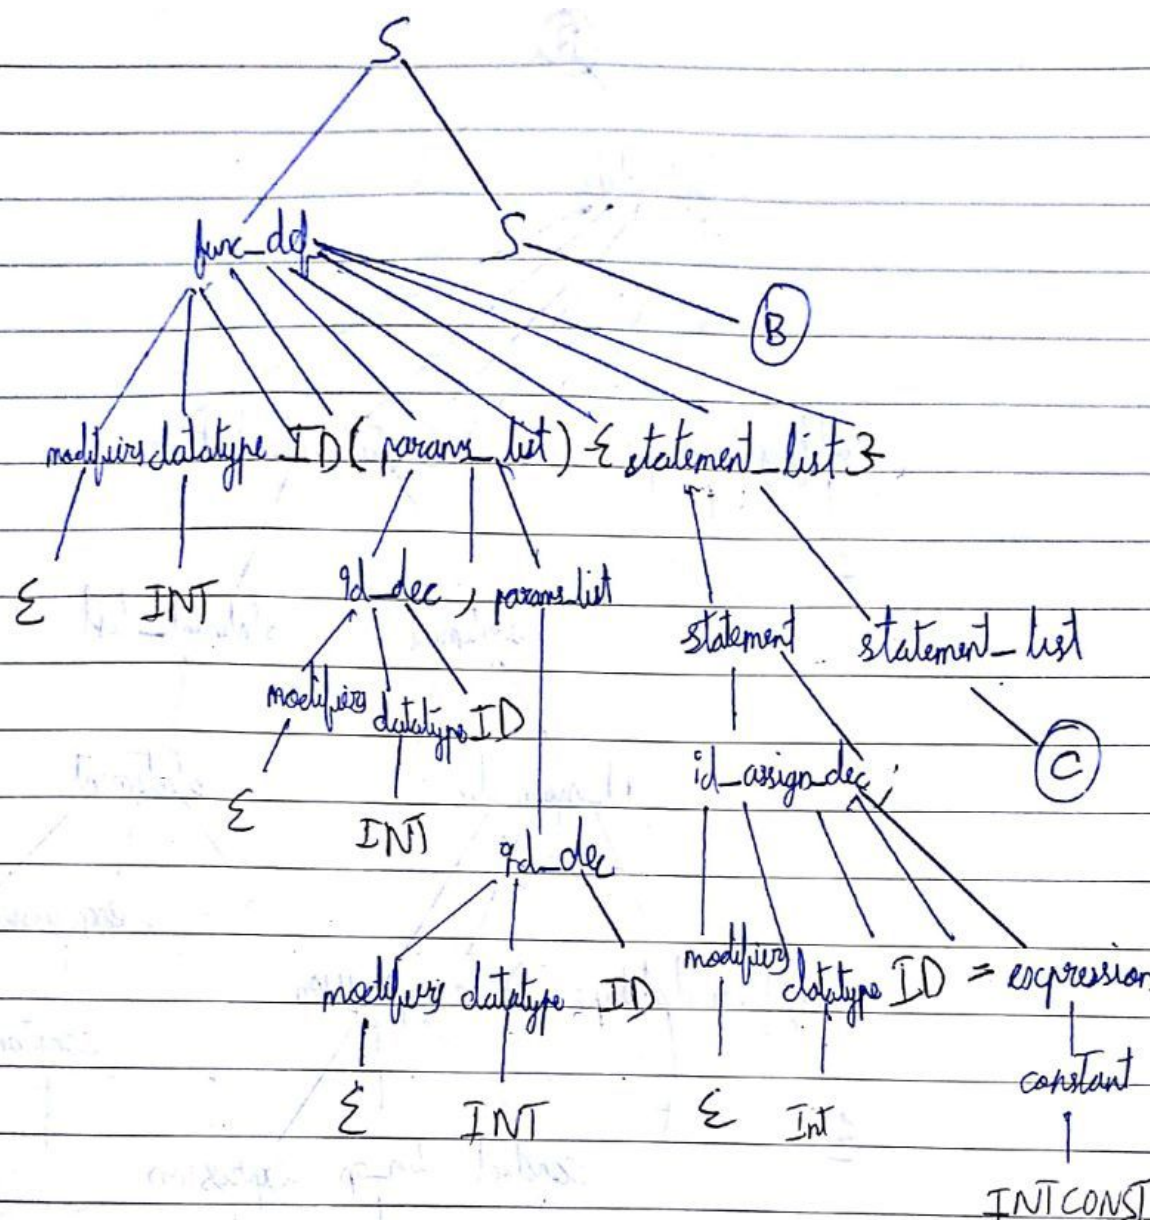 S
func_def S
B
modifiers datatype ID ( params_list ) { statement_list }
ε INT id_dec , params_list
statement statement_list
modifiers datatype ID
id_assign_dec ; C
ε INT
id_dec
modifiers datatype ID = expression
modifiers datatype ID
constant
ε INT ε Int
INTCONST